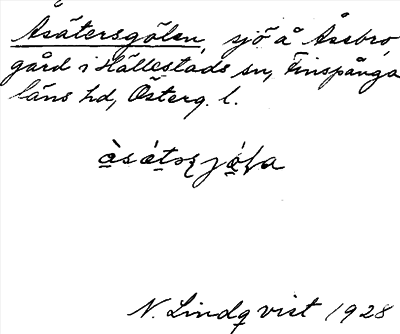 Åsätersgölen, sjö å Åsebro
gård i Hällestads sn, Finspånga
läns hd, Österg. l.
N. Lindqvist 1928